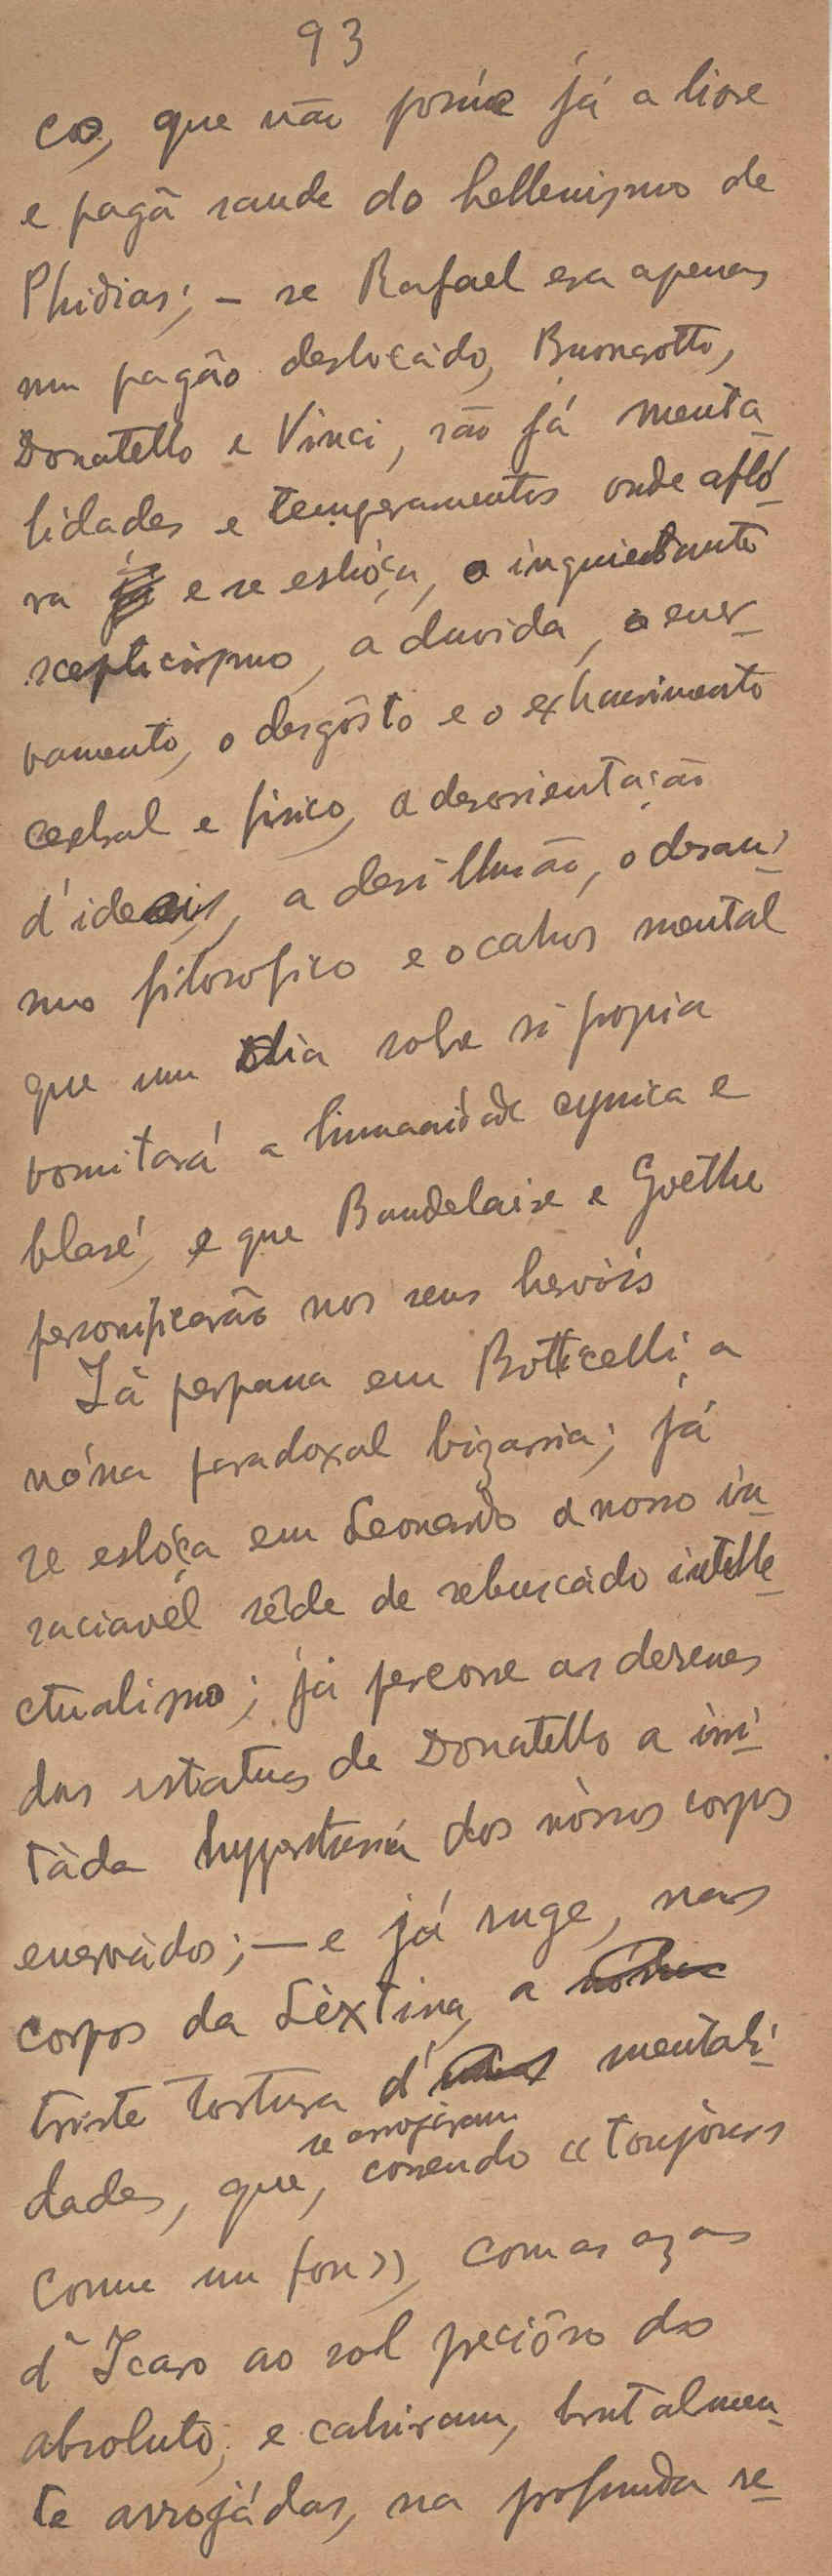 93
co, que não possúe já a livre
e pagã saude do hellenismo de
Phidias; – se Rafael era apenas
um pagão deslocádo, Buonarotto,
Donatello e Vinci, são já menta-
lidades e temperamentos onde afló-
ra e se esbóça, o inquietante
scepticismo, a duvida, o ener-
vamento, o desgôsto e o exhaurimento
cerebral e fisico, a desorientação
d'ideais, a desillusão, o desani-
mo filosofico e o cahos mental
que um dia sobre si propia
vomitará a humanidade cynica e
blasé, e que Baudelaire e Goethe
personificarão nos seus heróis
Já perpassa em Botticelli a
nóssa paradoxal bizarria; já
se esbóça em Leonardo a nosso in-
saciavél sêde de rebuscádo intelle-
ctualismo; já percorre as derenes
das estatuas de Donatello a irri-
táda hyperstesia dos nóssos corpos
enervádos; — e já ruge, nos
corpos da Sèxtina, a nóssa
triste tortura d' mentali-
dades, que, se arrojàram
correndo «toujòurs
comme un fou», com as azas
d'Icaro ao sol preciôso do
absoluto; e cahiram, brutalmen-
te arrojádas, na profunda re-